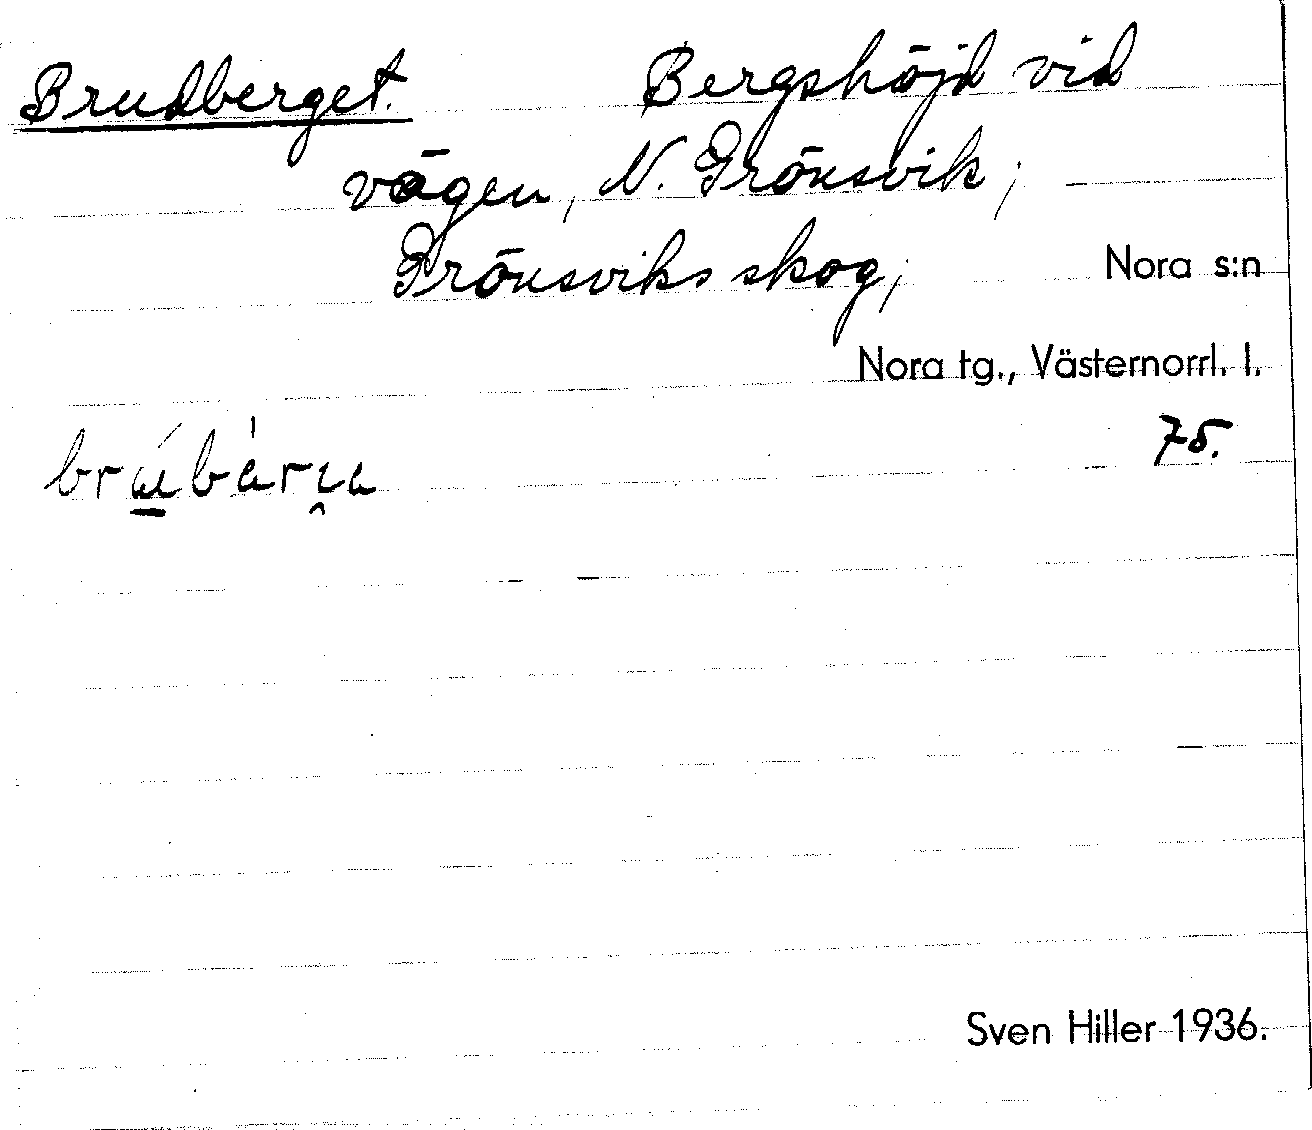 Brudberget. Bergshöjd vid
vägen, N. Grönsvik;
Grönsviks skog;
Nora s:n
Nora tg., Västernorrl. l.
75.
Sven Hiller 1936.